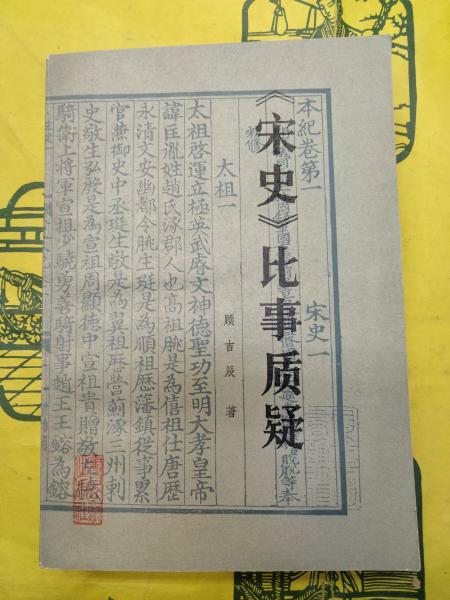 《宋史》比事质疑
顾吉辰 著
本紀卷第一
宋史一
脫脫等奉
太祖一
太祖啓運立極英武睿文神德聖功至明大孝皇帝
諱匡胤姓趙氏涿郡人也高祖朓是為僖祖仕唐歷
永清文安幽都令朓生珽是為順祖歷藩鎮從事累
官兼御史中丞珽生敬是為翼祖歷營薊涿三州刺
史敬生弘殷是為宣祖周顯德中宣祖貴贈敬
騎衛上將軍宣祖少驍勇善騎射事趙王王鎔為鎔